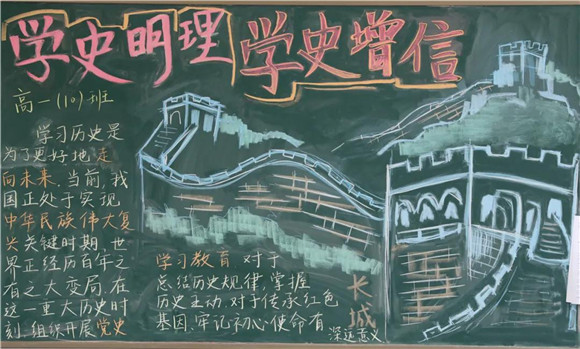 学史明理 学史增信
高一(10)班
学习历史是
为了更好地走
向未来.当前,我
国正处于实现
中华民族伟大复
兴关键时期.世
界正经历百年之
有之大变局,在
这一重大历史时
刻.组织开展党史
学习教育对于
总结历史规律,掌握
历史主动,对于传承红色
基因.牢记初心使命有
深远意义
长城